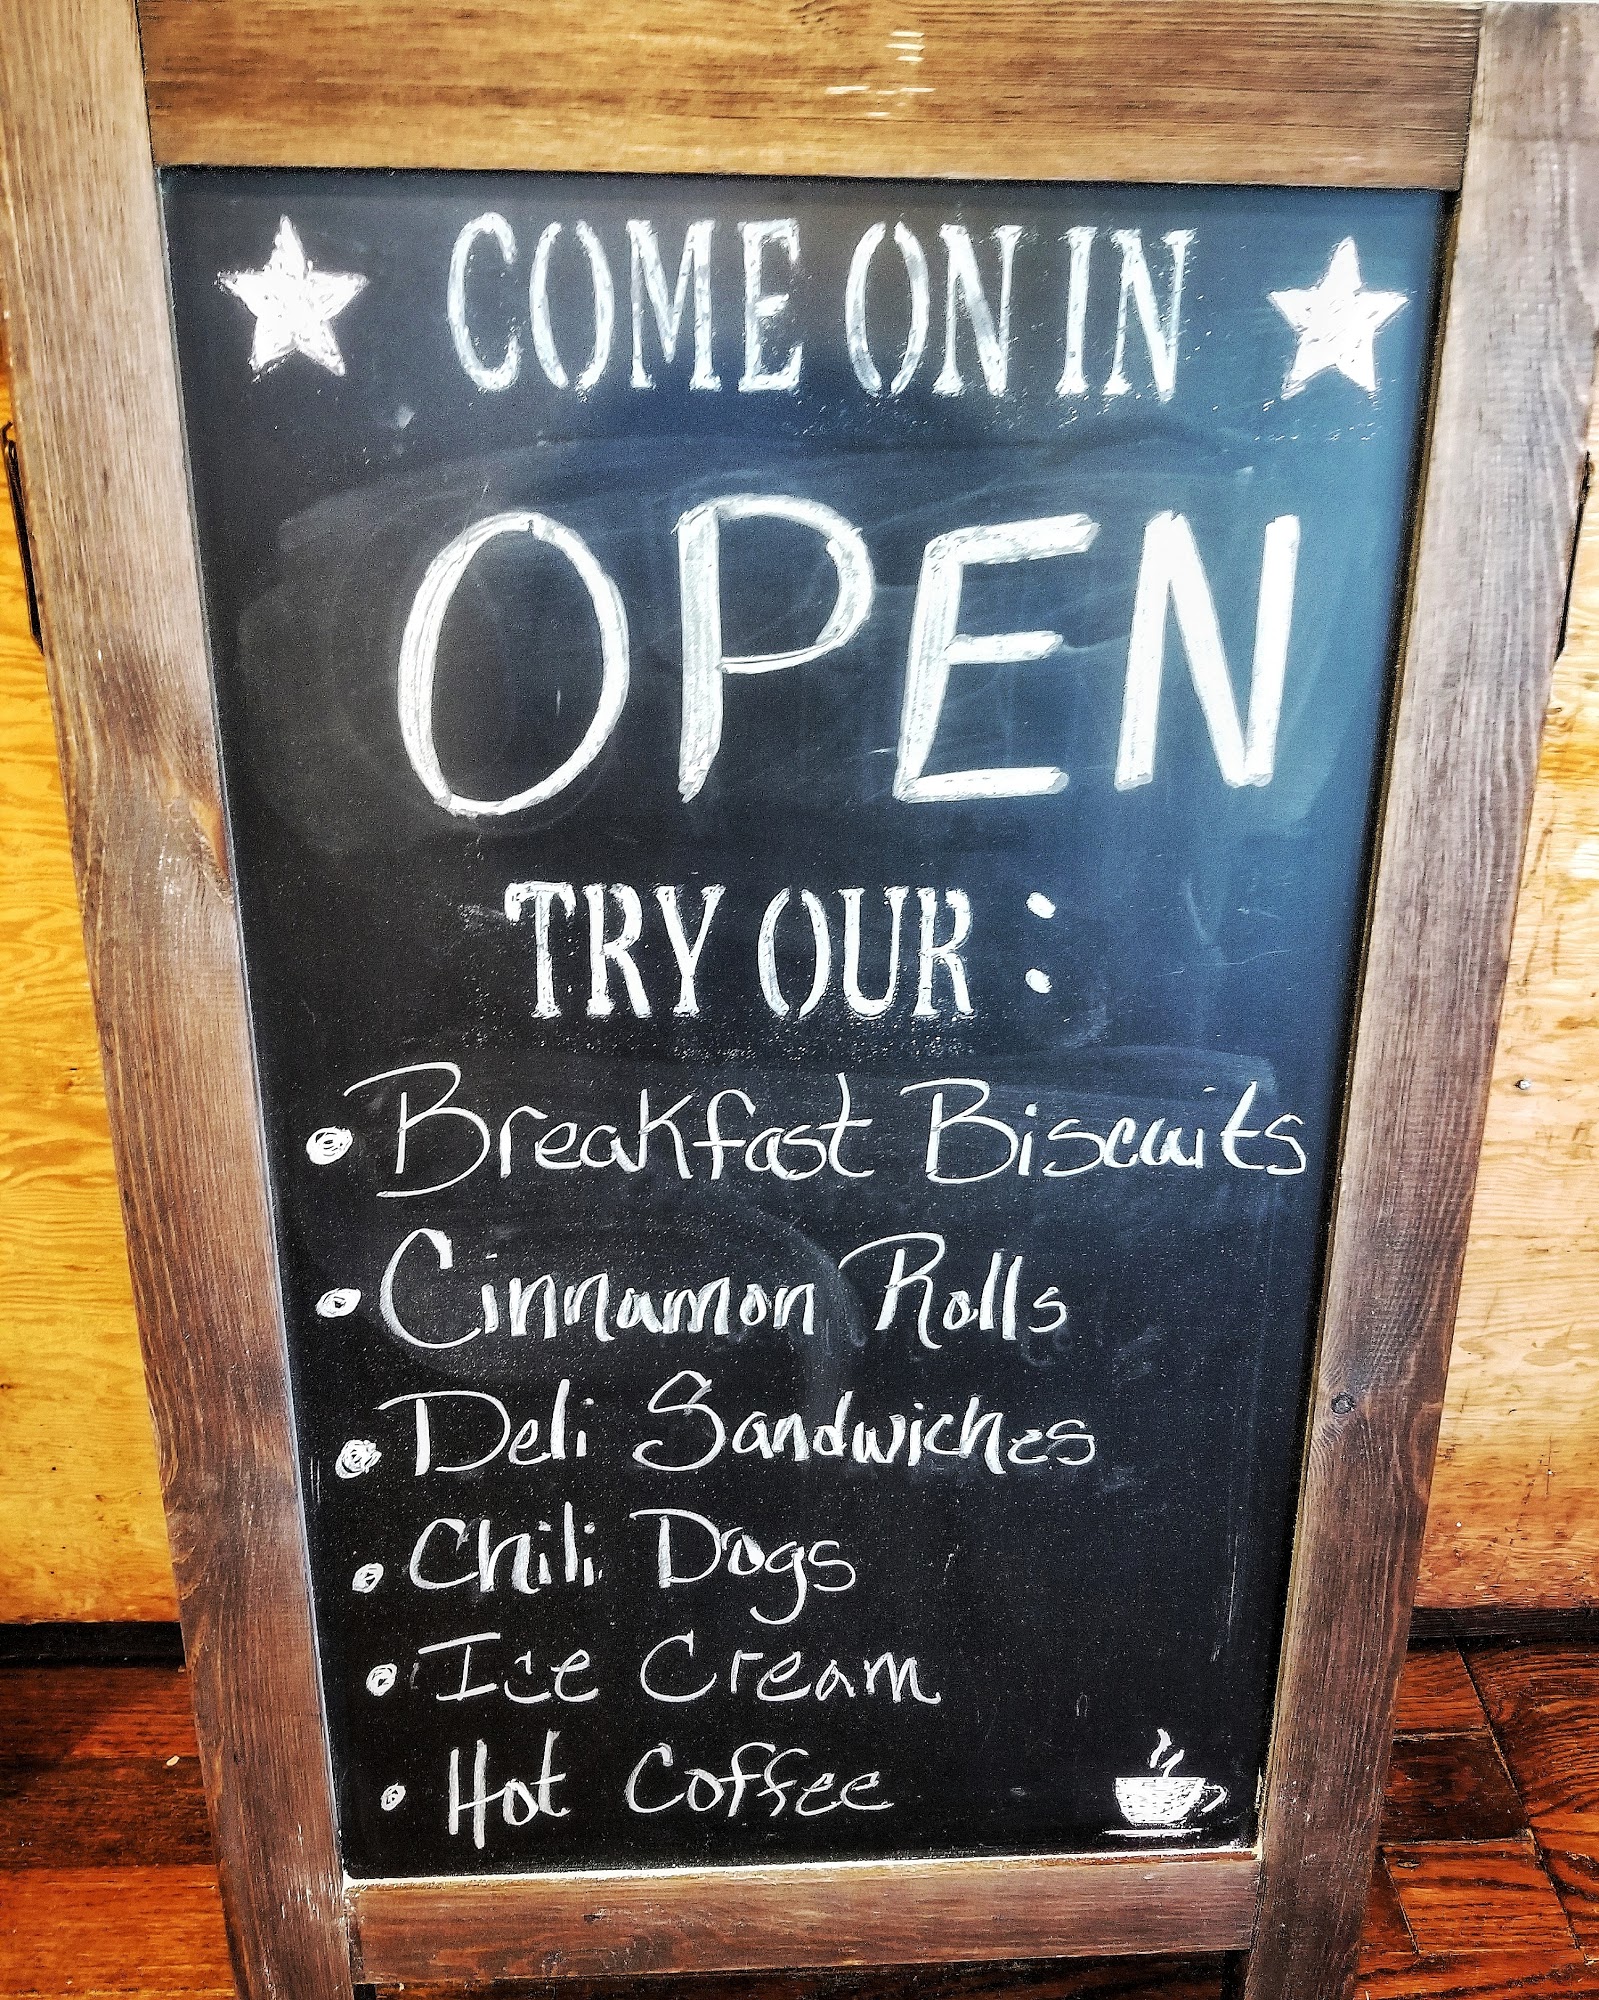 COME ON IN
OPEN
TRY OUR :
• Breakfast Biscuits
• Cinnamon Rolls
• Deli Sandwiches
• Chili Dogs
• Ice Cream
• Hot Coffee